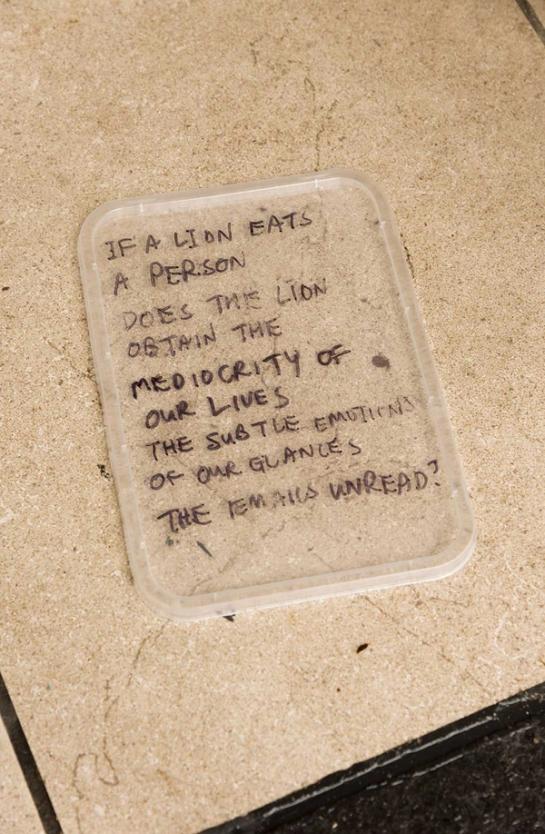 IF A LION EATS
A PERSON
DOES THE LION
OBTAIN THE
MEDIOCRITY OF
OUR LIVES
THE SUBTLE EMOTIONS
OF OUR GLANCES
THE EMAILS UNREAD?